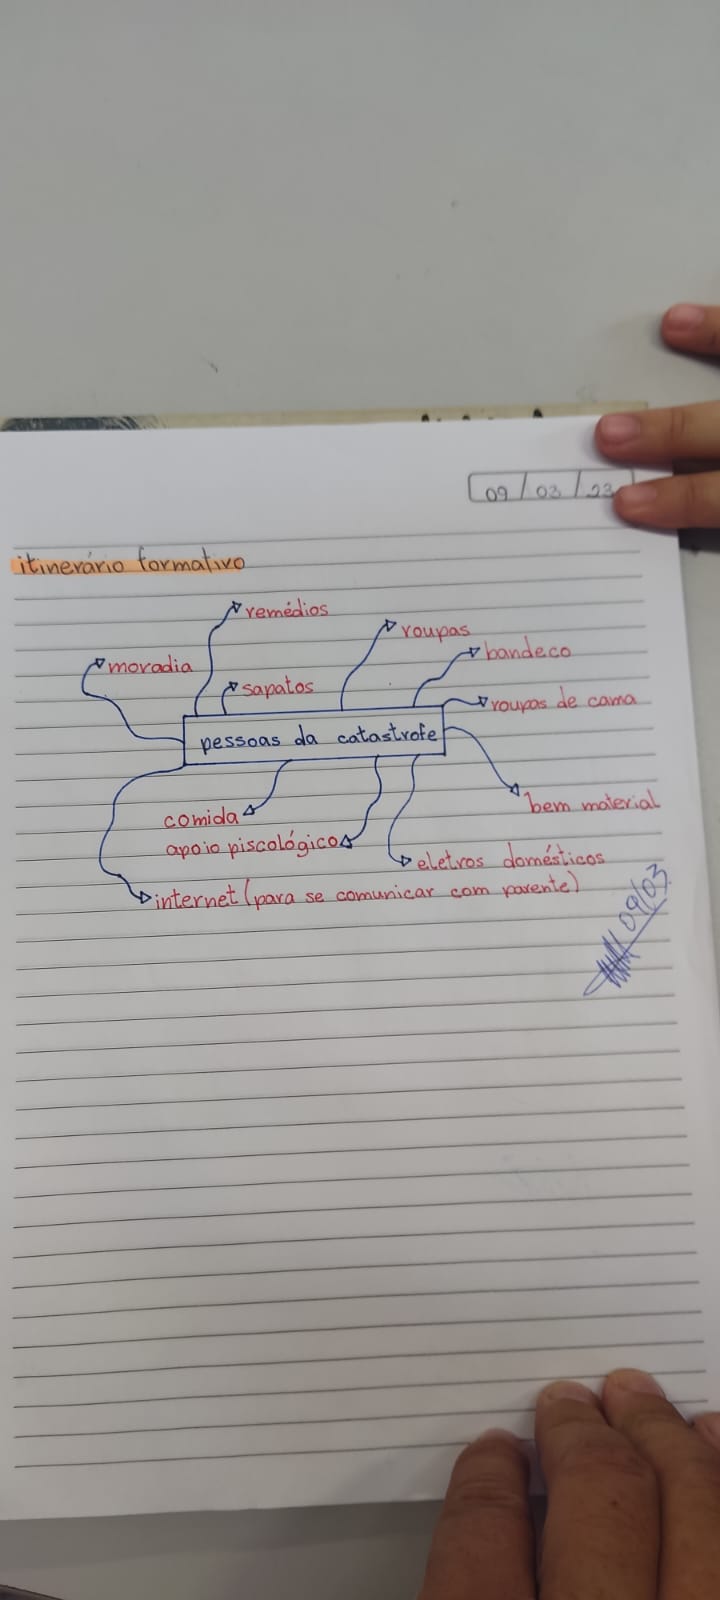 09/03/23
itinerário formativo
remédios
roupas
moradia
bandeco
sapatos
roupas de cama
pessoas da catastrofe
bem material
comida
apoio piscológico
eletros domésticos
internet (para se comunicar com parente)
09/03